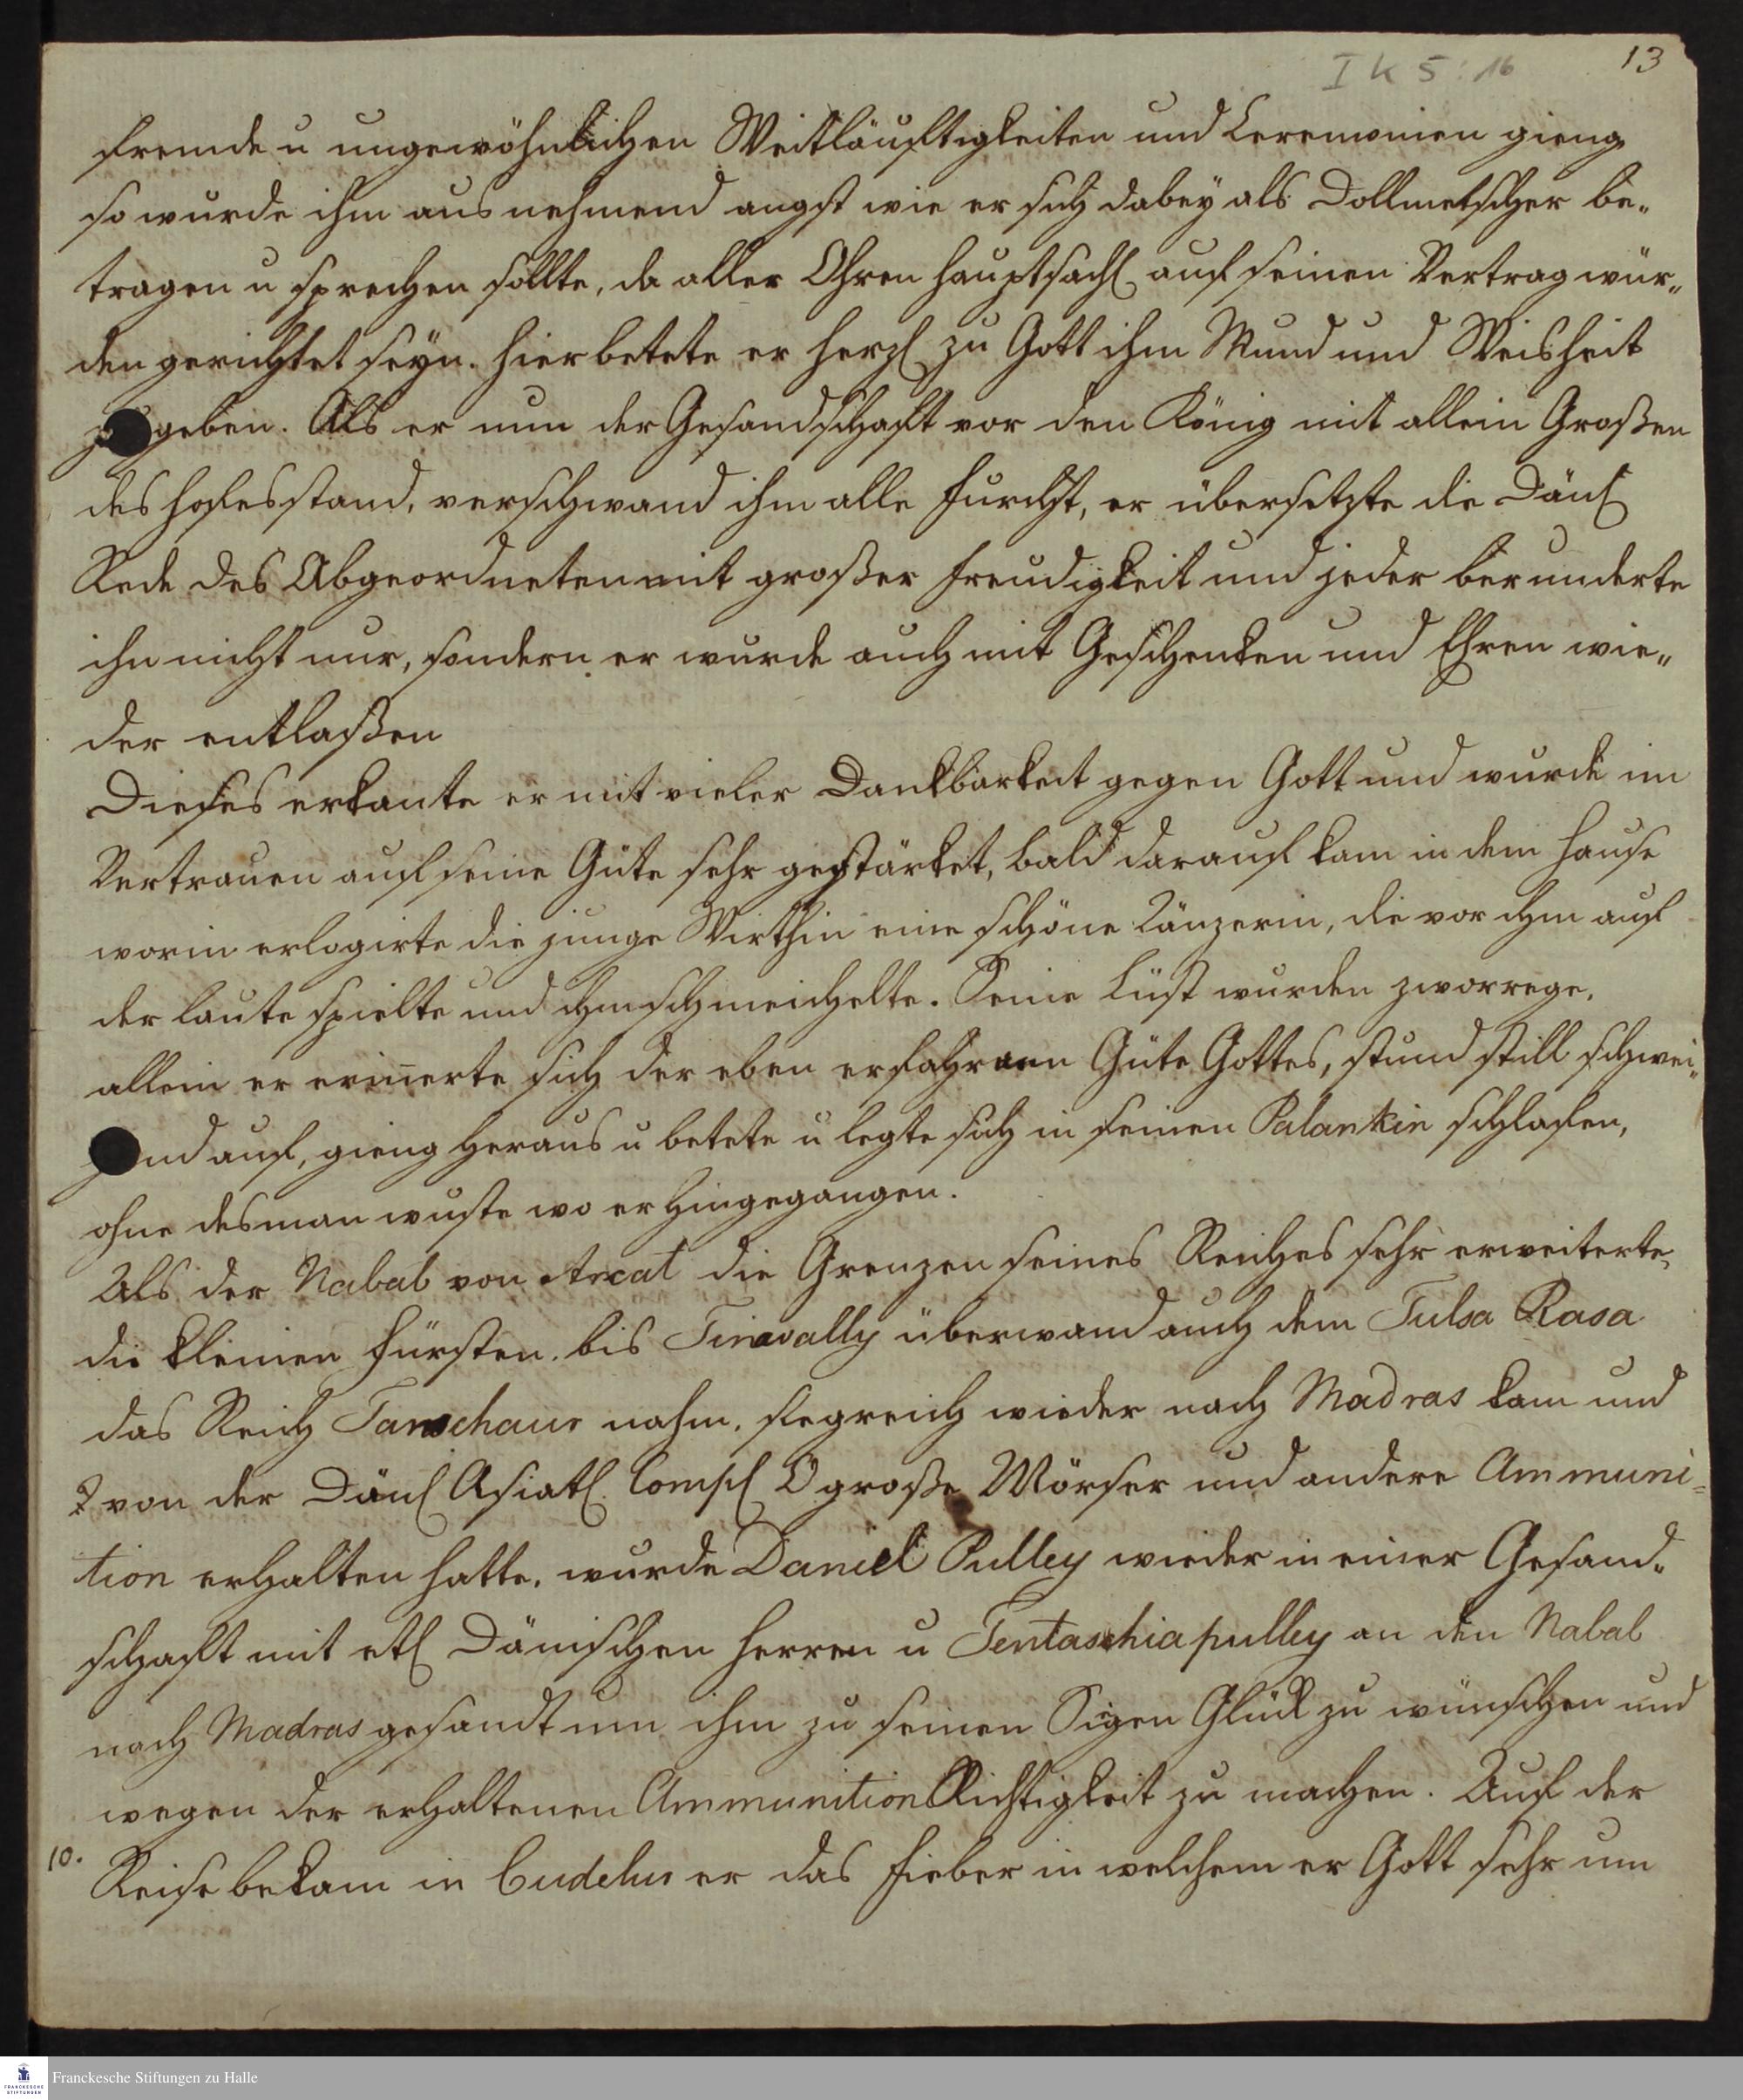 I K 5:16
13
fremde u ungewöhnlichen Weitläuftigkeiten und Ceremonien gieng
so wurde ihm ausnehmend angst wie er sich dabey als Dollmetscher be„
tragen u sprechen sollte, da aller Ohren hauptsächl auf seinen Vertrag wür„
den gerichtet seyn. hier betete er herzl zu Gott ihm Mund und Weisheit
zu geben. Als er nun der Gesandschaft vor den König mit allein Großen
des hofes stand, verschwand ihm alle furcht, er übersetzte die Dänl
Rede des Abgeordneten mit großer freudigkeit und jeder berunderte
ihn nicht nur, sondern er wurde auch mit Geschenken und Ehren wie„
der entlaßen
Dieses erkante er mit vieler Dankbarkeit gegen Gott und wurde im
Vertrauen auf seine Güte sehr gestärket, bald darauf kam in dem hause
worin er logirte die junge Wirthin eine schöne Tänzerin, die vor ihm auf
der Laute spielte und ihm schmeichelte. Seine Lüst wurden zwor rege,
allein er erinerte sich der eben erfahrnen Güte Gottes, stund still schwei„
gend auf, gieng heraus u betete u legte sich in seinen Palankin schlafen,
ohne des man wuste wo er hingegangen.
Als der Nabab von Arcat die Grenzen seines Reiches sehr erweiterte,
die kleinen fürsten bis Tinavally überwand auch dem Tulsa Rasa
das Reich Tanschaur nahm, siegreich wieder nach Madras kam und
2 von der Dänl Asiatl. Compl große Mörser und andere Ammuni=
tion erhalten hatte, wurde Daniel Pulley wieder in einer Gesand„
schaft mit etl Dänischen herren u Tentaschiapulley an den Nabab
nach Madras gesandt um ihm zu seinen Sigen Glück zu wünschen und
wegen der erhaltenen Ammunition Richtigkeit zu machen. Auf der
10. Reise bekam in Cudelur er das fieber in welchem er Gott sehr um
Franckesche Stiftungen zu Halle
FRANCKESCHE
STIFTUNGEN